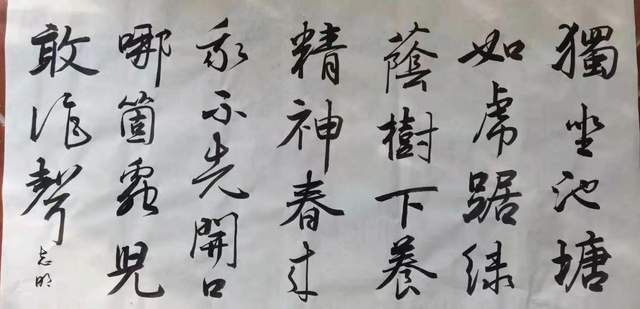 獨坐池塘
如虎踞绿
蔭樹下養
精神春来
我不先開口
哪箇蟲兒
敢作聲
志明